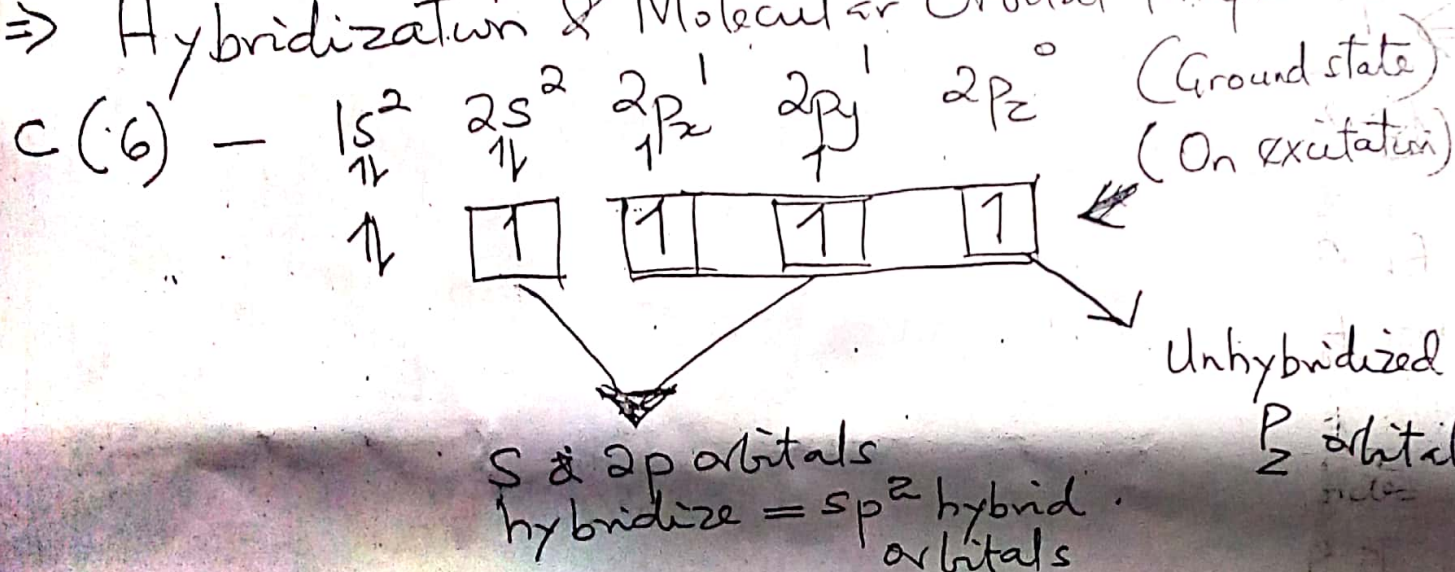 ⇒ Hybridization & Molecular Orbital
C (6) – 1s² 2s² 2pₓ¹ 2py¹ 2pz⁰ (Ground state)
⥮ ⥮ 1 1 (On excitation)
⥮ 1 1 1 1
Unhybridized
Pz orbital
S & 2p orbitals
hybridize = sp² hybrid
orbitals